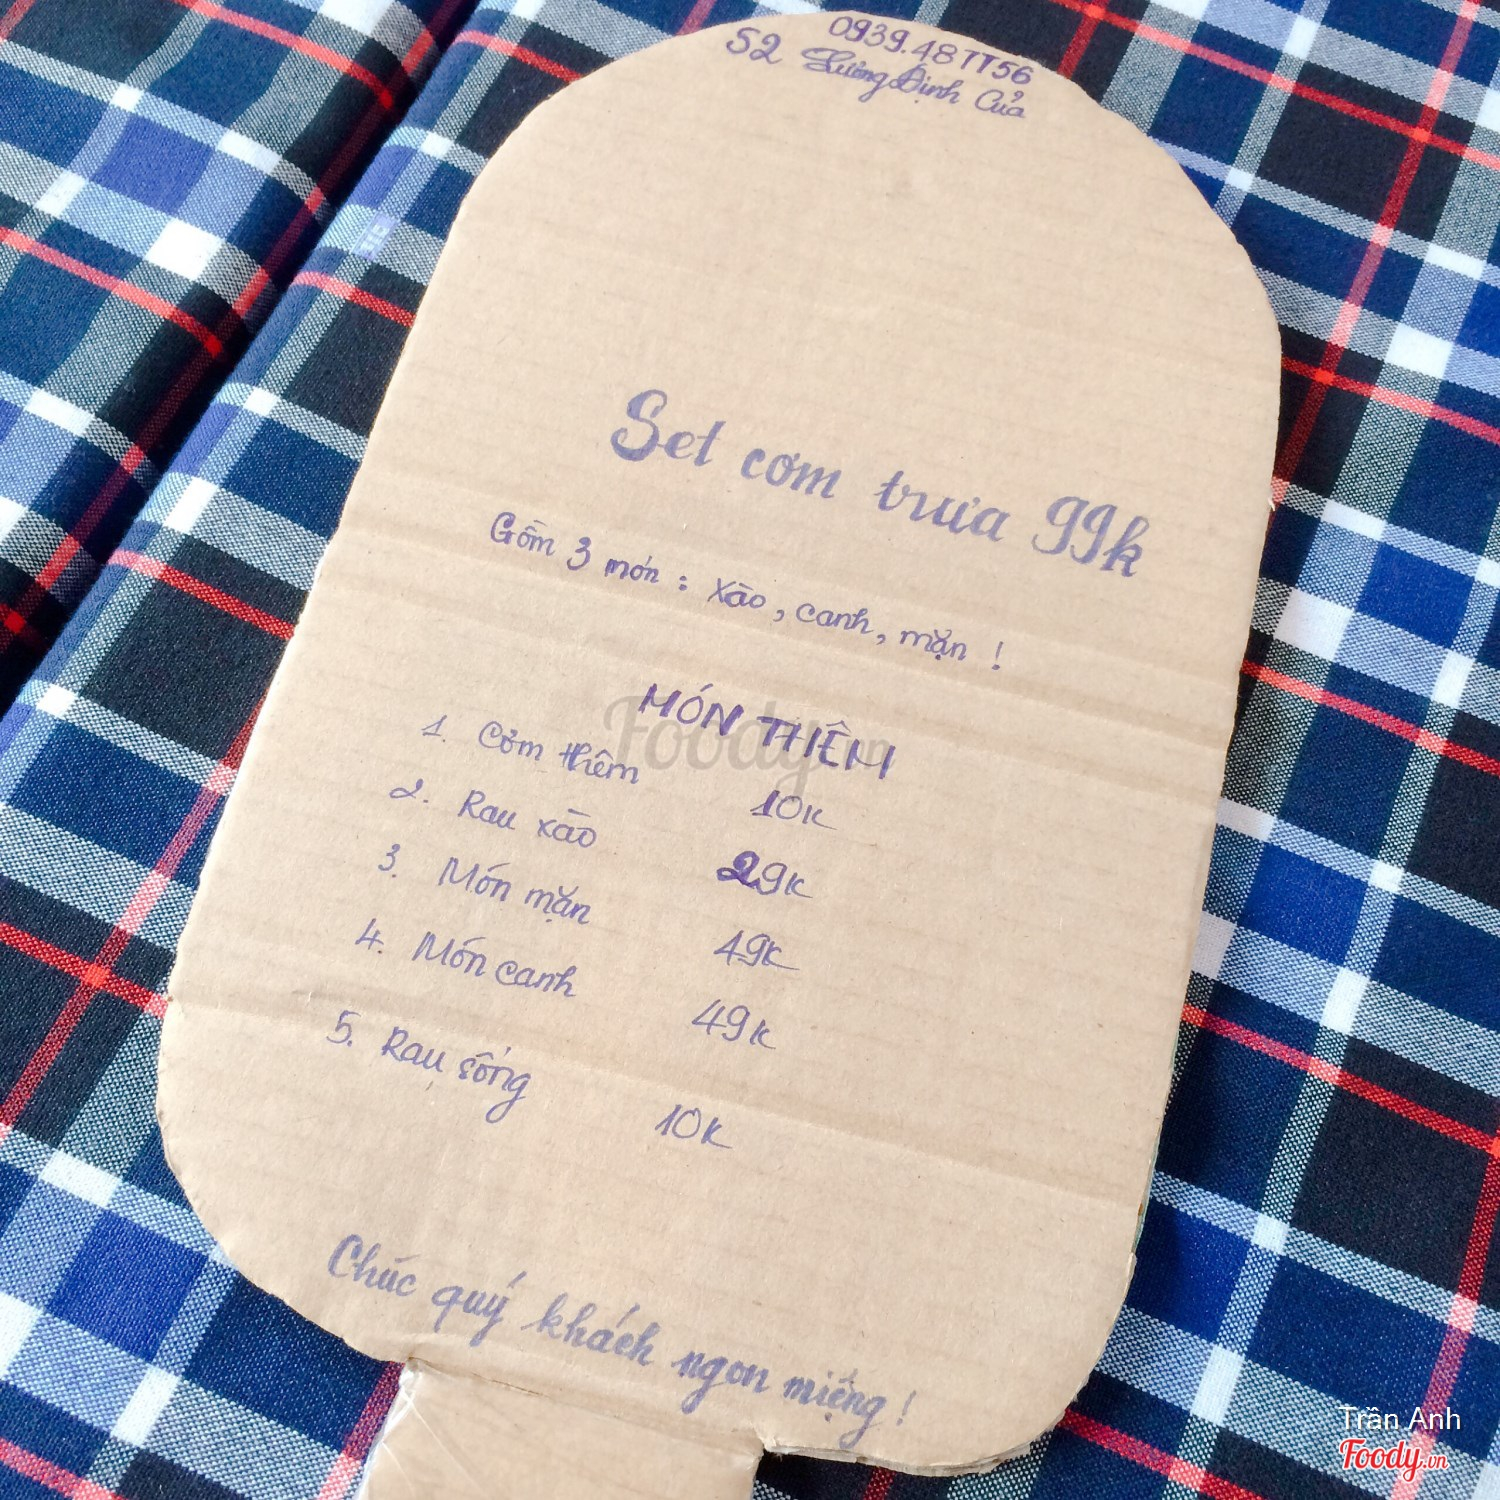 0939.487756
S2 Lương Định Của
Set cơm trưa 99k
Gồm 3 món : Xào, canh, mặn !
MÓN THÊM
1. Cơm thêm 10K
2. Rau xào 29K
3. Món mặn 49K
4. Món canh 49K
5. Rau sống 10K
Chúc quý khách ngon miệng !
Foody.vn
Trần Anh
Foody.vn